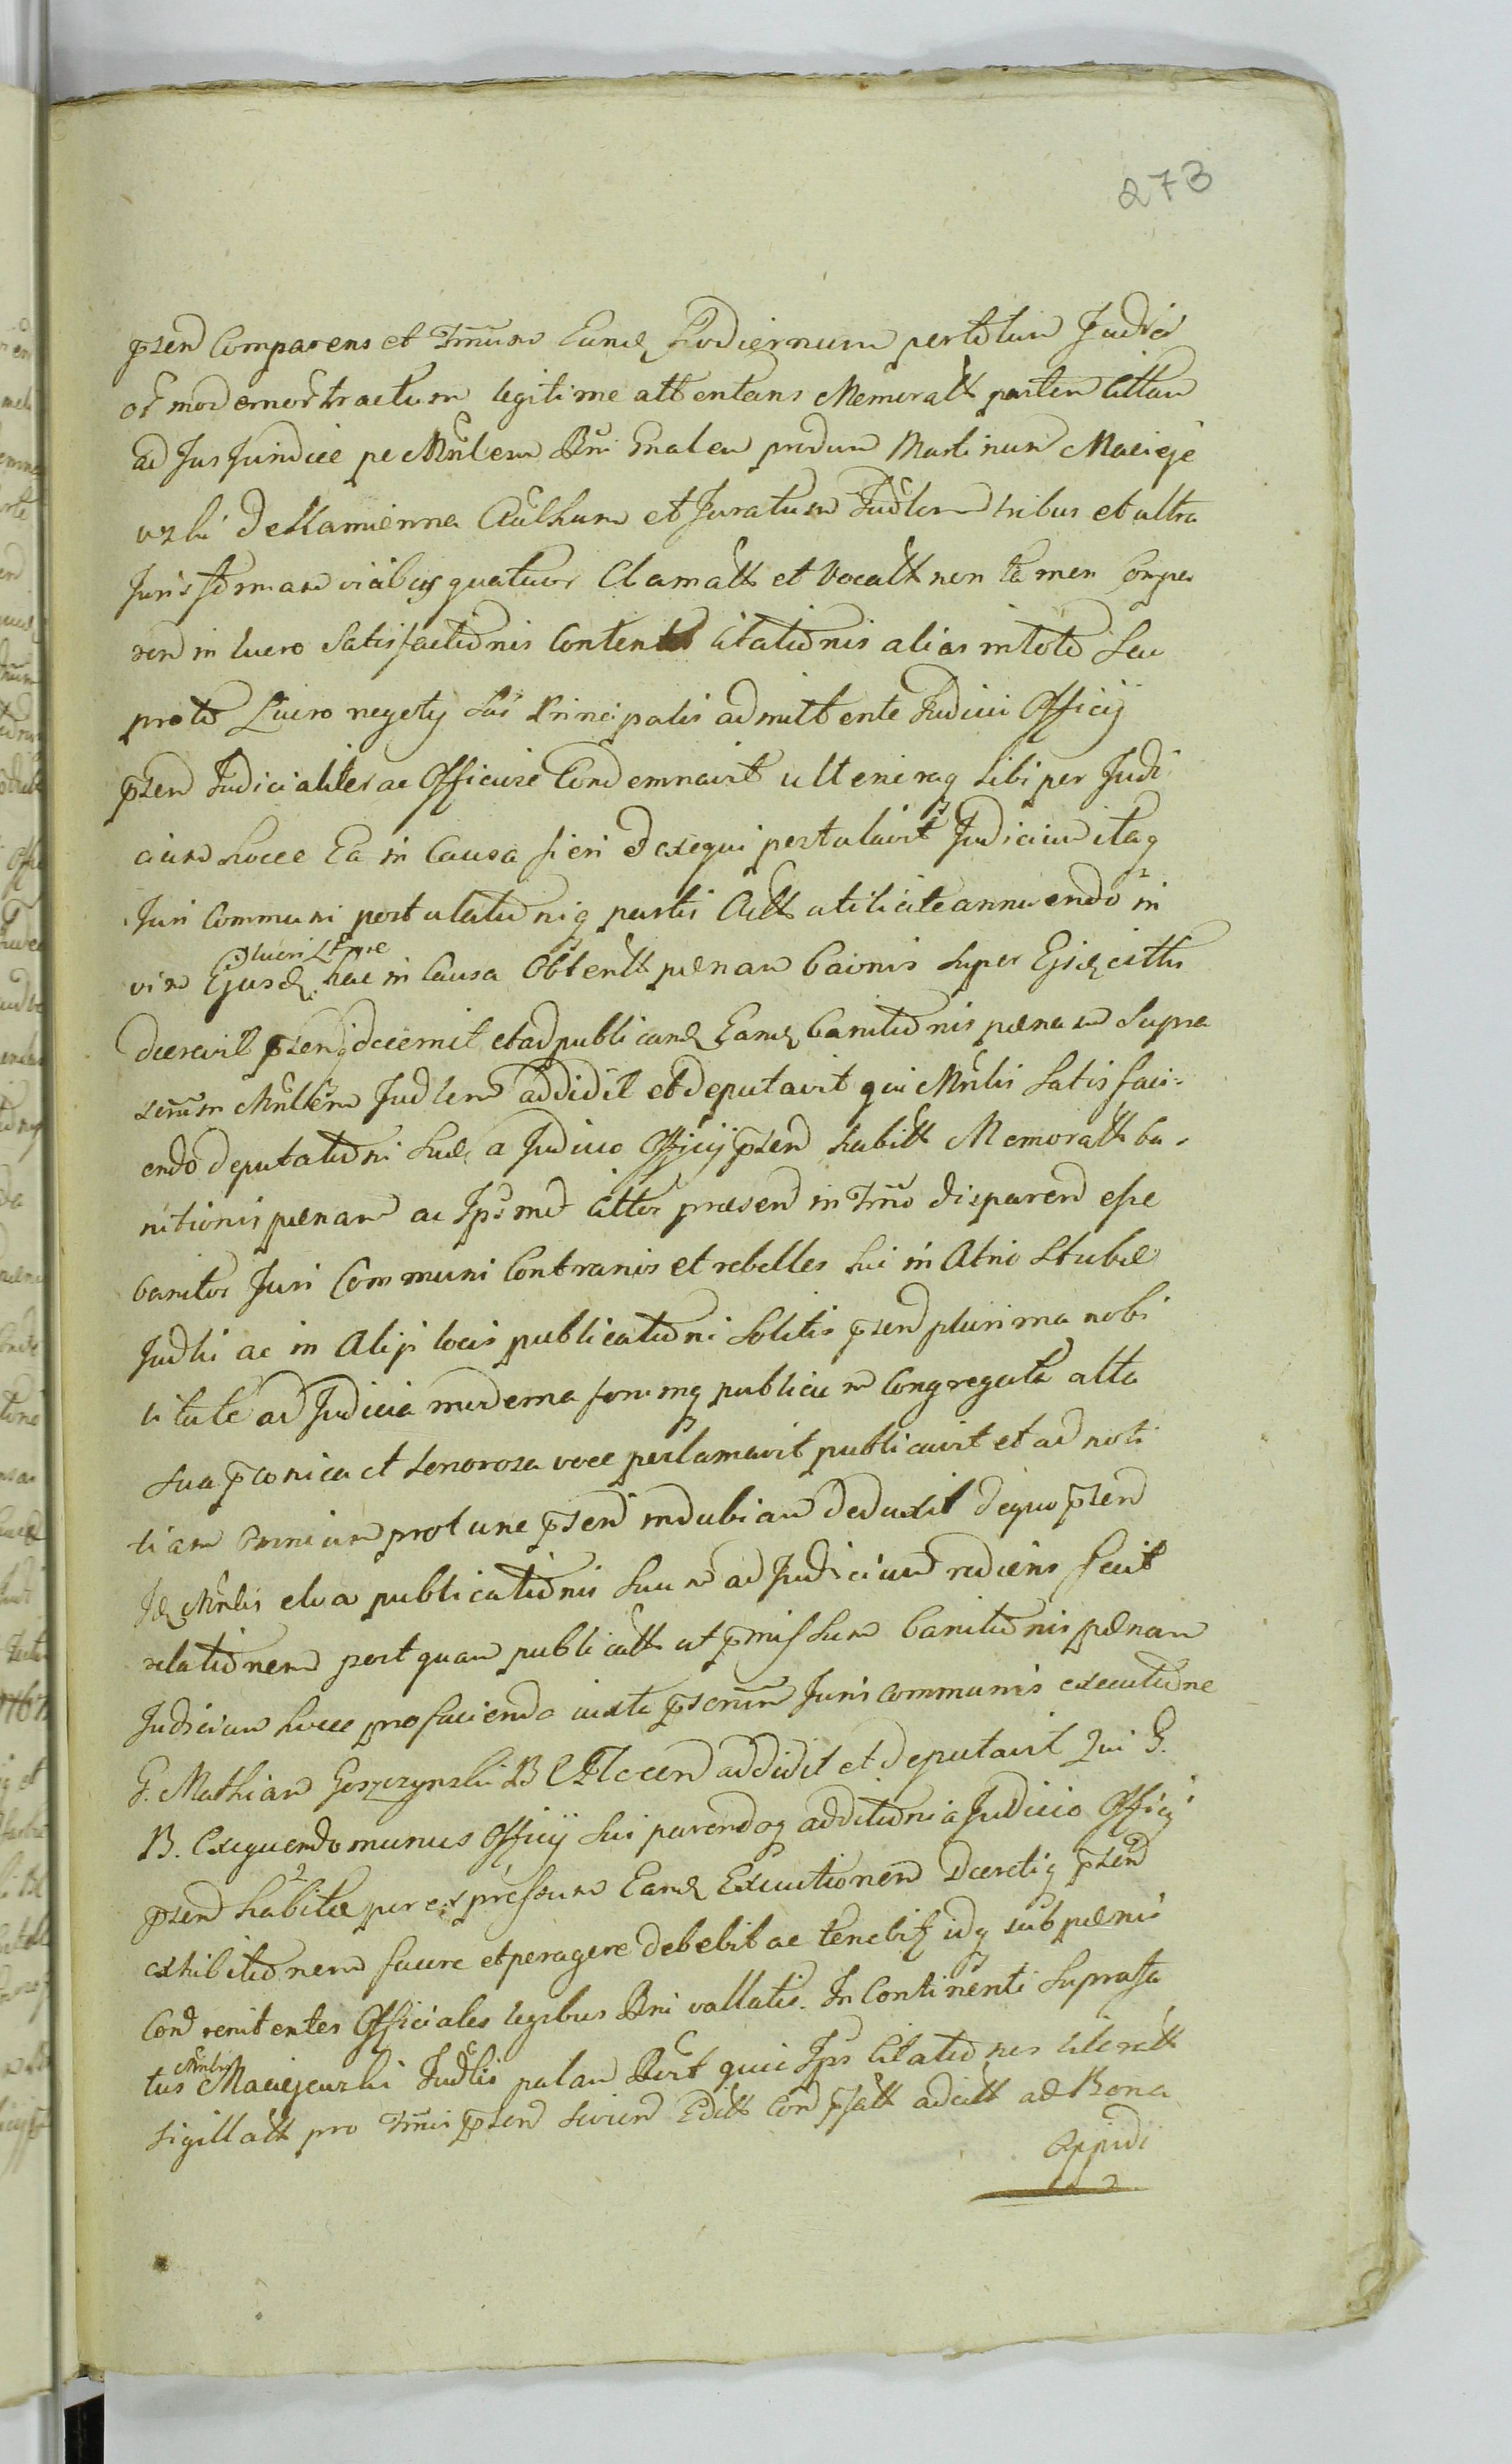 273
psen Comparens et Tmum Eund Hodiernum pertotum Judicio
or modernor tractum legitime attentans Memoratt partem Cittam
ad Jus Juridice pe Mnlem Rni Gnalem prdum Martinum Macieje
wski de Kamienna Authum et Juratum Judlem tribus et ultra
Juris formam viabus quatuor Clamatt et Vocatt non tamen Compa
ren in lucro Satisfactionis Content Citationis alias in toto Seu
proto Lucro negoty Sui Principalis admittente Judicii Officij
psen Judicialiter ac Officiose Condemnavit ulteriraq sibi per Judi
cium hocce Ea in Causa fieri et exequi postulavit Judicium itaq
Juri Communi postulationiq partis Actt utiliciter annuendo in
vim Ejusd hac in Causa Obtentt pænam Baionis super Ejsd cittis
decrevit psenq decernit et ad publicand Eand Banitionis pænam Supra
scrum Mnlem Judlem addidit et deputavit qui Mnlis Satisfaci-
endo deputationi Suæ a Judicio Officij psen habitt Memoratt ba-
nitionis pænam ac Ipsmet Cittos præsen in Tmno disparen esse
banitos Juri Communi Contrarios et rebelles Sui in Atrio Stubæ
Judlli ac in Alijs locis publicationi Solitis psen plurima nobi
litate ad Judicia moderna forumq publicum Congregata alta
Sua pconica et Sonorosa voce perlamavit publicavit et ad noti
tiam omnium protunc psen indubiam deduxit de quo psen
Id Mnlis elva publicationis Suum ad Judicium rediens fecit
relationem post quam publicatt ut pmissum Banitionis pænam
Judicium hocce pro facienda iuxta pscrum Juris communis executione
G. Mathiam Goszczynski B C Ploccen addidit et deputavit Qui G.
B. Exequendo munus Officij Sui parendoq additioni a Judicio Officij
psen habitæ per expressum Eand Executionem Decretiq psen
exhibitionem facere et peragere debebit ac tenebit idq sub pænis
Con renitentes Officiales legibus Rni vallatis. In Continenti Suprafa
tus Mnlis Maciejewski Judlis palam Rert quia Ips Citationes literatt
sigillatt pro Tmis psen serien Editt Con psatt adcitt ad Bona
Oppidi